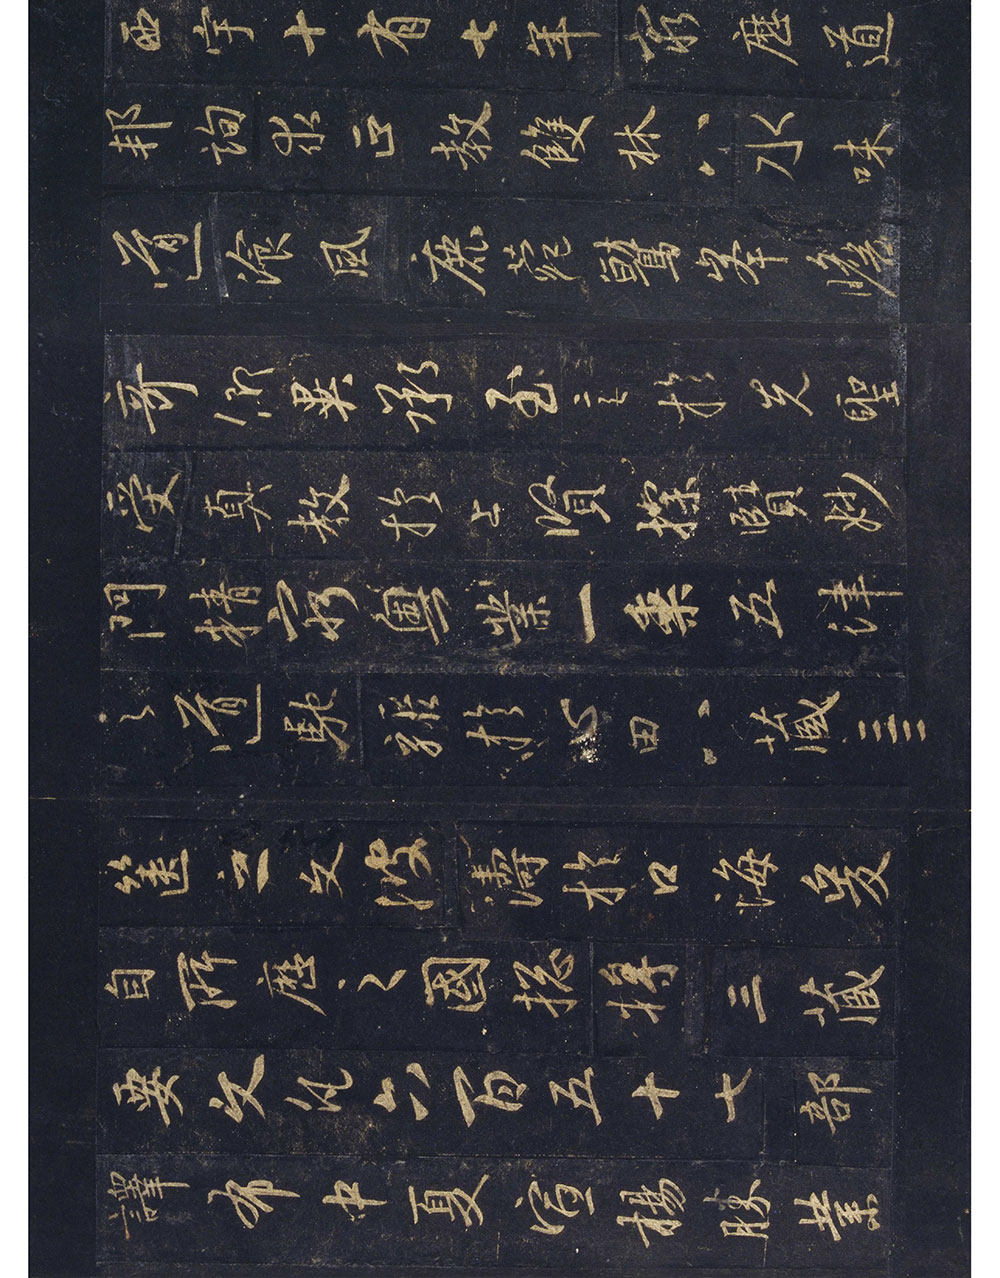 西宇十有七年窮歷道
邦詢求正教雙林八水味
道飡風鹿菀鷲峯瞻
奇仰異承至言於先聖
受真教於上賢探賾妙
門精窮奧業一乘五律
之道馳驟於心田八藏三
篋之文波濤於口海爰
自所歷之國總將三藏
要文凡六百五十七部
譯布中夏宣揚勝業